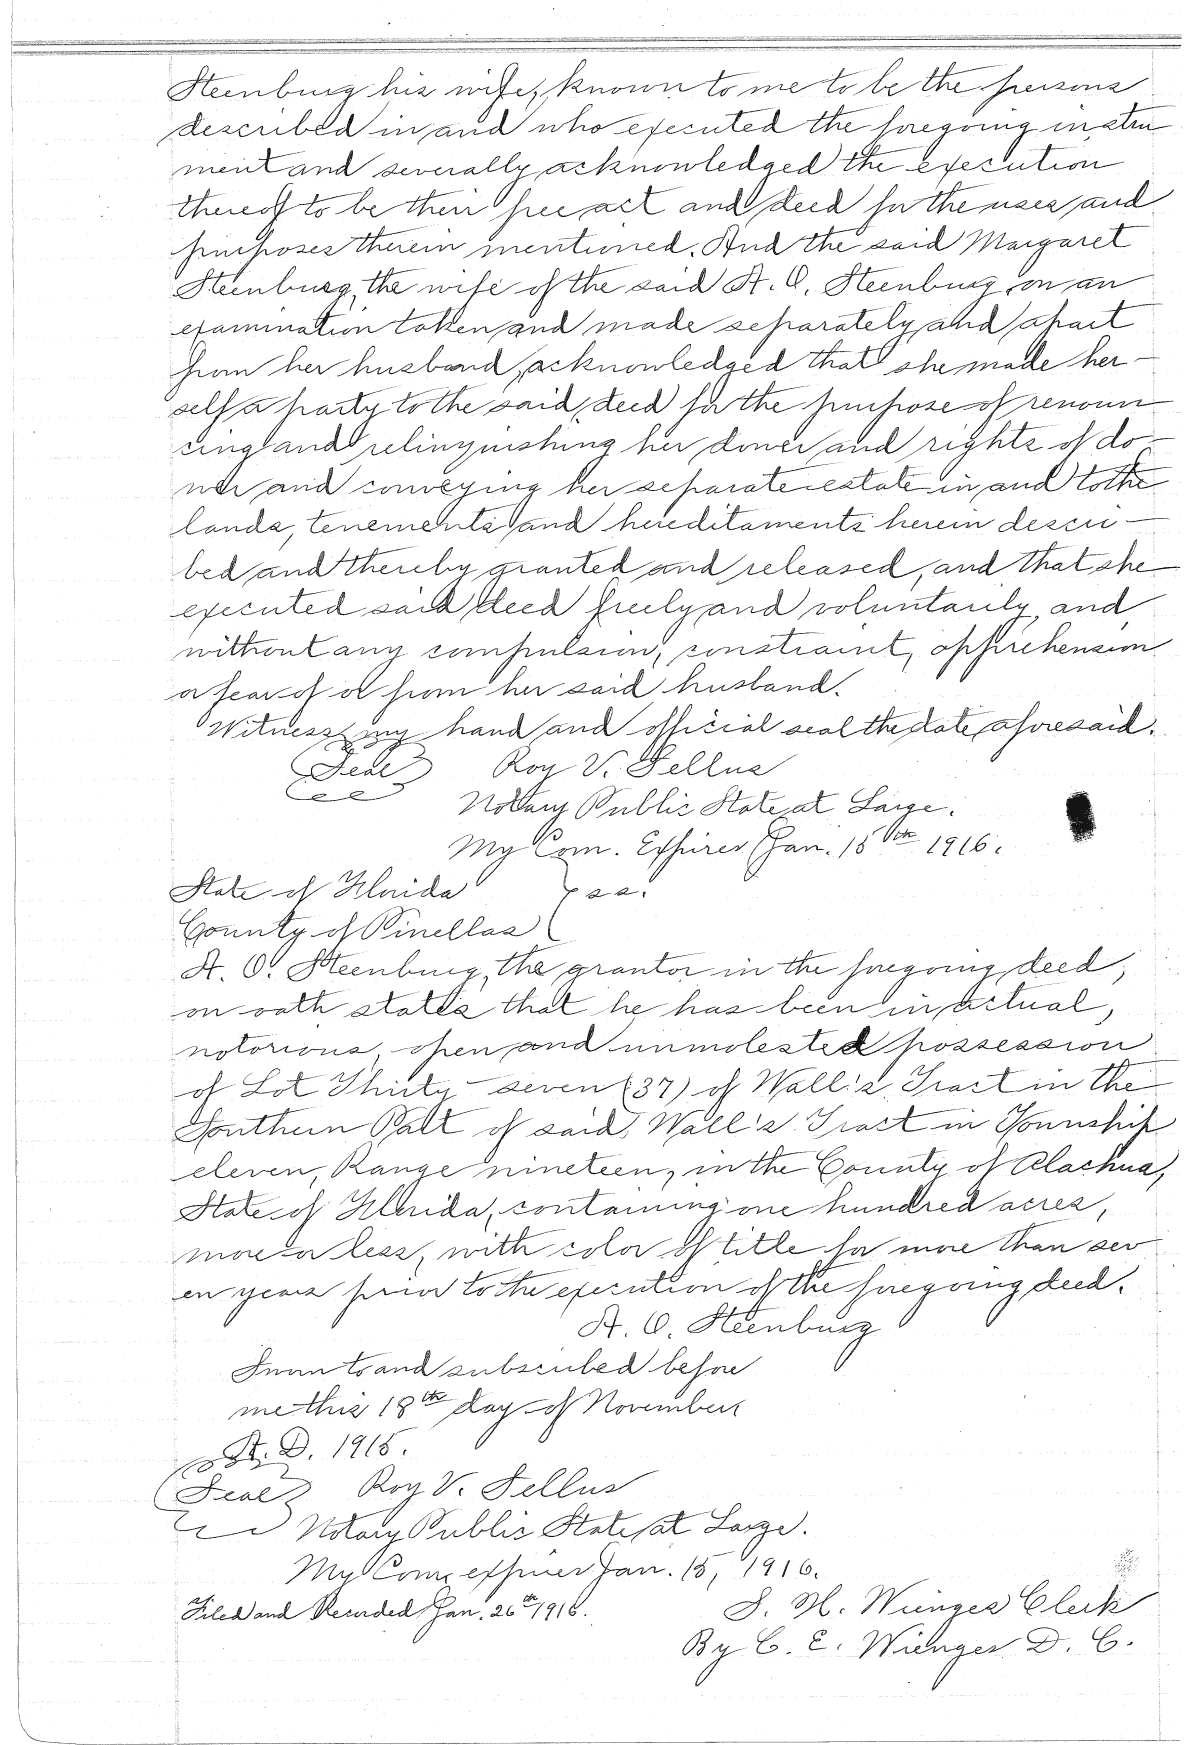 Steenburg his wife, known to me to be the persons
described in and who executed the foregoing instru
ment and severally acknowledged the execution
thereof to be their free act and deed for the uses and
purposes therein mentioned. And the said Margaret
Steenburg, the wife of the said A. O. Steenburg, on an
examination taken and made separately and apart
from her husband, acknowledged that she made her-
self a party to the said deed for the purpose of renoun
cing and relinquishing her dower and rights of do-
wer and conveying her separate estate in and to the
lands, tenements and hereditaments herein descri-
bed and thereby granted and released, and that she
executed said deed freely and voluntarily, and
without any compulsion, constraint, apprehension
or fear of or from her said husband.
Witness my hand and official seal the date aforesaid.
Seal Roy V. Sellus
Notary Public State at Large.
My Com. Expires Jan. 15th 1916.
State of Florida } ss.
County of Pinellas
A. O. Steenburg, the grantor in the foregoing deed,
on oath states that he has been in actual,
notorious, open and unmolested possession
of Lot Thirty-seven (37) of Wall's Tract in the
Southern Patt of said Wall's Tract in Township
eleven, Range nineteen, in the County of Alachua,
State of Florida, containing one hundred acres,
more or less, with color of title for more than sev
en years prior to the execution of the foregoing deed.
A. O. Steenburg
Sworn to and subscribed before
me this 18th day of November
A. D. 1915.
Seal Roy V. Sellus
Notary Public State at Large.
My Com. expires Jan. 15, 1916.
Filed and Recorded Jan. 26th 1916. S. H. Wienges Clerk
By C. E. Wienges D. C.